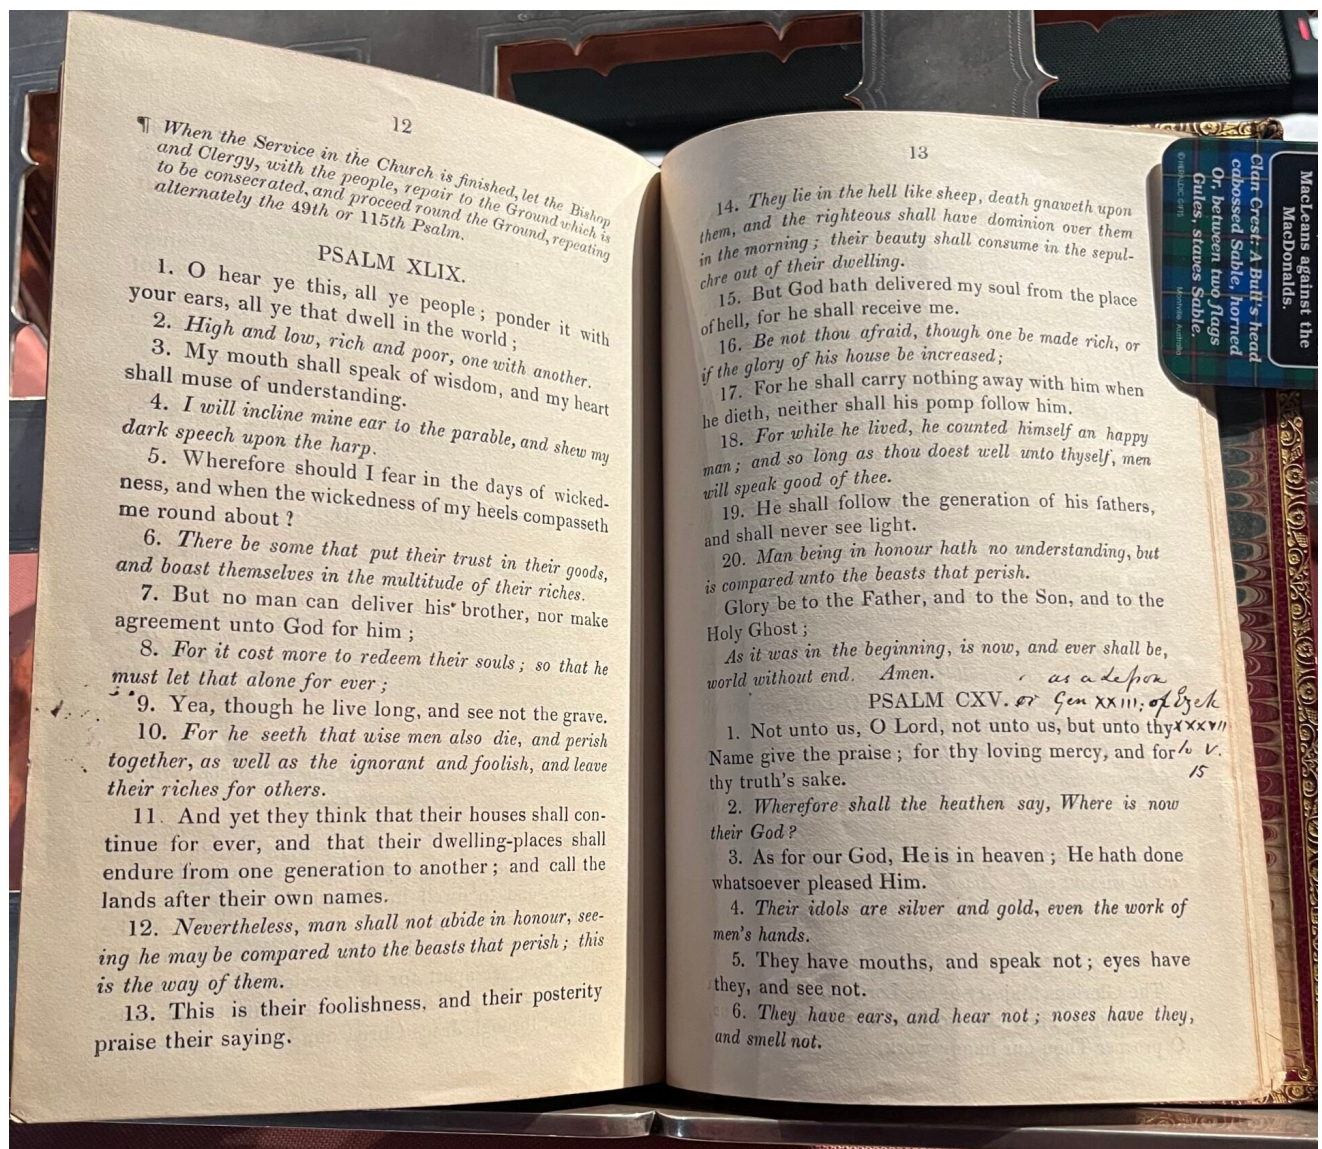 12
¶ When the Service in the Church is finished, let the Bishop
and Clergy, with the people, repair to the Ground which is
to be consecrated, and proceed round the Ground, repeating
alternately the 49th or 115th Psalm.
PSALM XLIX.
1. O hear ye this, all ye people; ponder it with
your ears, all ye that dwell in the world;
2. High and low, rich and poor, one with another.
3. My mouth shall speak of wisdom, and my heart
shall muse of understanding.
4. I will incline mine ear to the parable, and shew my
dark speech upon the harp.
5. Wherefore should I fear in the days of wicked-
ness, and when the wickedness of my heels compasseth
me round about?
6. There be some that put their trust in their goods,
and boast themselves in the multitude of their riches.
7. But no man can deliver his brother, nor make
agreement unto God for him;
8. For it cost more to redeem their souls; so that he
must let that alone for ever;
9. Yea, though he live long, and see not the grave.
10. For he seeth that wise men also die, and perish
together, as well as the ignorant and foolish, and leave
their riches for others.
11. And yet they think that their houses shall con-
tinue for ever, and that their dwelling-places shall
endure from one generation to another; and call the
lands after their own names.
12. Nevertheless, man shall not abide in honour, see-
ing he may be compared unto the beasts that perish; this
is the way of them.
13. This is their foolishness, and their posterity
praise their saying.
13
14. They lie in the hell like sheep, death gnaweth upon
them, and the righteous shall have dominion over them
in the morning; their beauty shall consume in the sepul-
chre out of their dwelling.
15. But God hath delivered my soul from the place
of hell, for he shall receive me.
16. Be not thou afraid, though one be made rich, or
if the glory of his house be increased;
17. For he shall carry nothing away with him when
he dieth, neither shall his pomp follow him.
18. For while he lived, he counted himself an happy
man; and so long as thou doest well unto thyself, men
will speak good of thee.
19. He shall follow the generation of his fathers,
and shall never see light.
20. Man being in honour hath no understanding, but
is compared unto the beasts that perish.
Glory be to the Father, and to the Son, and to the
Holy Ghost;
As it was in the beginning, is now, and ever shall be,
world without end. Amen.
as a Lesson
PSALM CXV. or Gen XXIII; of Ezek
1. Not unto us, O Lord, not unto us, but unto thy XXXVII
Name give the praise; for thy loving mercy, and for to V.
thy truth's sake. 15
2. Wherefore shall the heathen say, Where is now
their God?
3. As for our God, He is in heaven; He hath done
whatsoever pleased Him.
4. Their idols are silver and gold, even the work of
men's hands.
5. They have mouths, and speak not; eyes have
they, and see not.
6. They have ears, and hear not; noses have they,
and smell not.
MacLeans against the
MacDonalds.
Clan Crest: A Bull's head
cabossed Sable, horned
Or, between two flags
Gules, staves Sable.
© HERALDIC GIFTS Montville, Australia